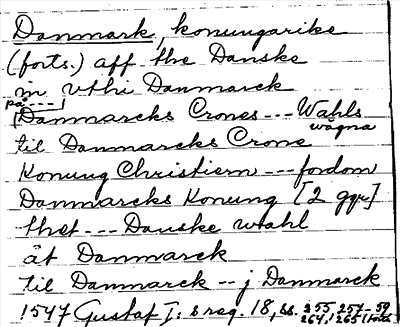 Danmark, konungarike
(forts.) aff the Danske
in uthi Danmarck
på----]
[Danmarcks Crones --- Wahls
wägna
til Danmarcks Crone
Konung Christiern --- fordom
Danmarcks Konung [2 ggr]
thet --- Danske wahl
åt Danmarck
til Danmarck -- j Danmarck
1547 Gustaf I:s reg. 18, ss. 255, 257-59
264, 265 (forts.